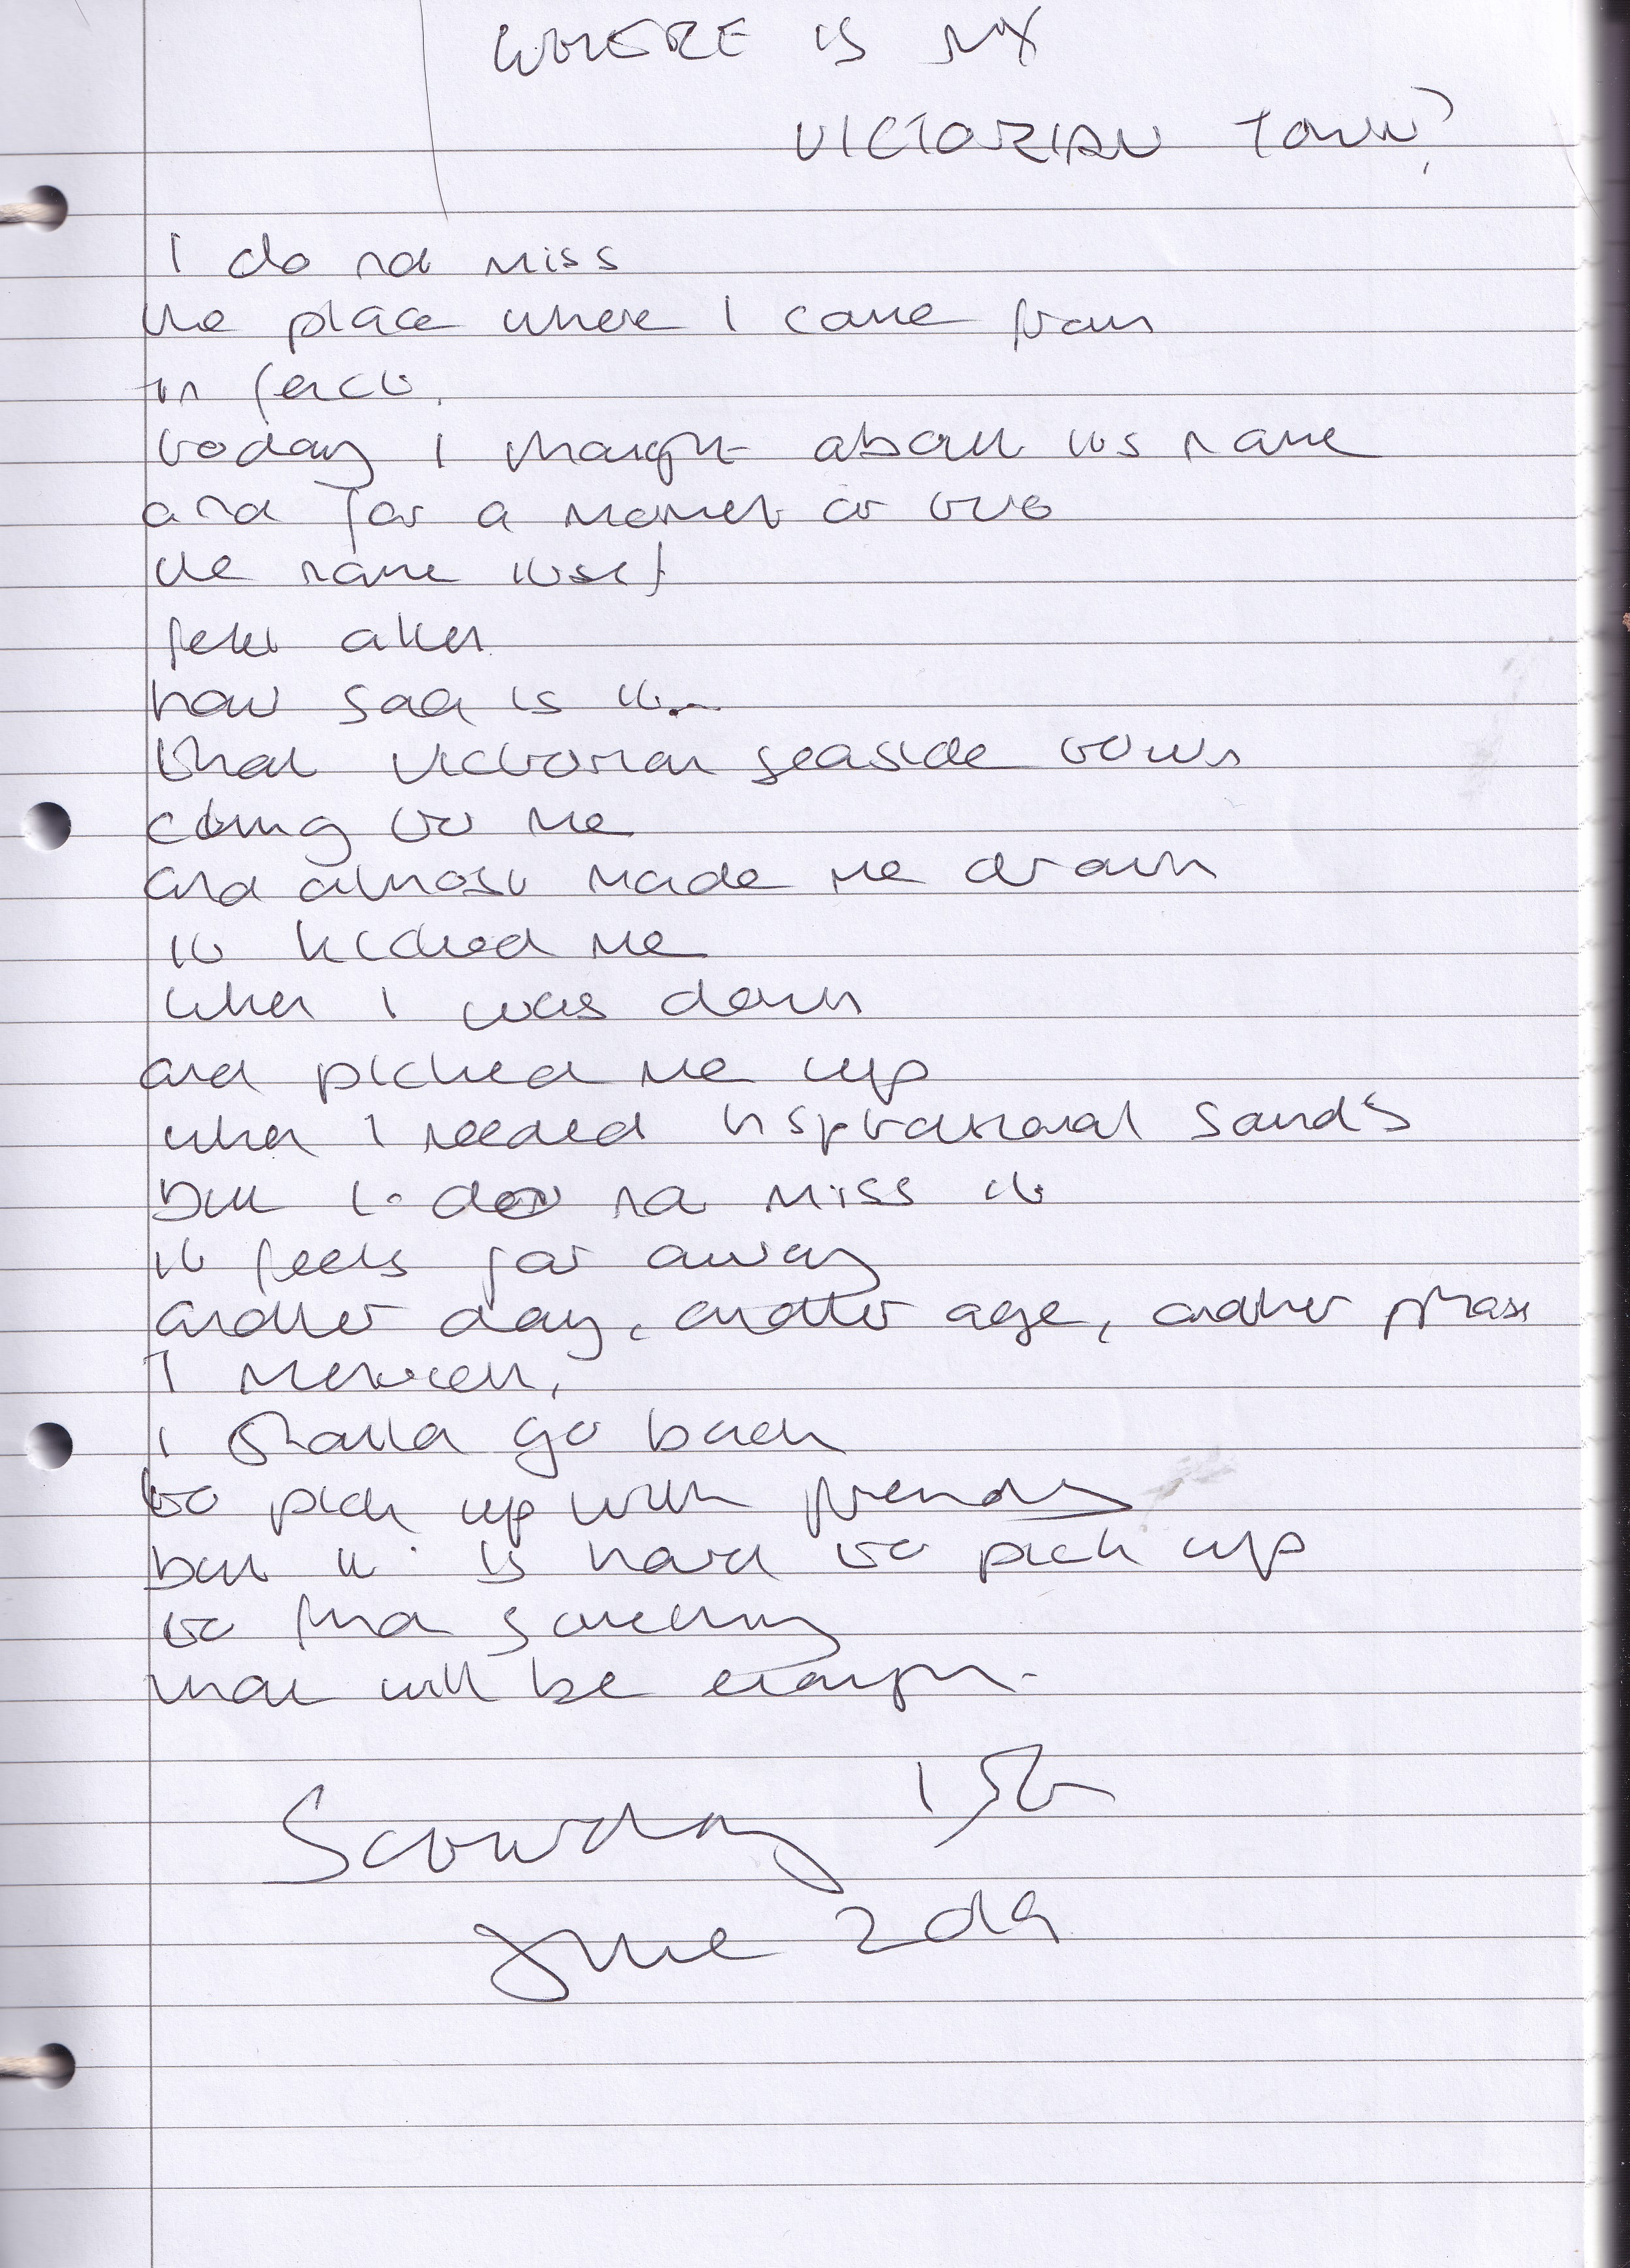 WHERE IS MY
VICTORIAN TOWN?
I do not miss
the place where I came from
in fact,
today I thought about its name
and for a moment or two
the name itself
felt alien
how sad is it
that Victorian seaside town
clung to me
and almost made me drown
it kicked me
when I was down
and picked me up
when I needed inspirational sands
but I do not miss it
it feels far away
another day, another age, another phase
I
I should go back
to pick up with friends
but it is hard to pick up
to find something
that will be enough.
Saturday 15th
June 2019